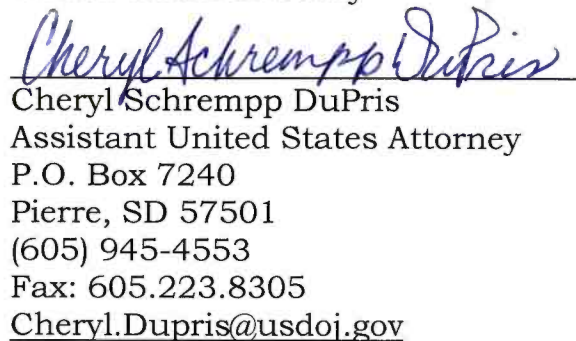 Cheryl Schrempp DuPris
Cheryl Schrempp DuPris
Assistant United States Attorney
P.O. Box 7240
Pierre, SD 57501
(605) 945-4553
Fax: 605.223.8305
Cheryl.Dupris@usdoj.gov